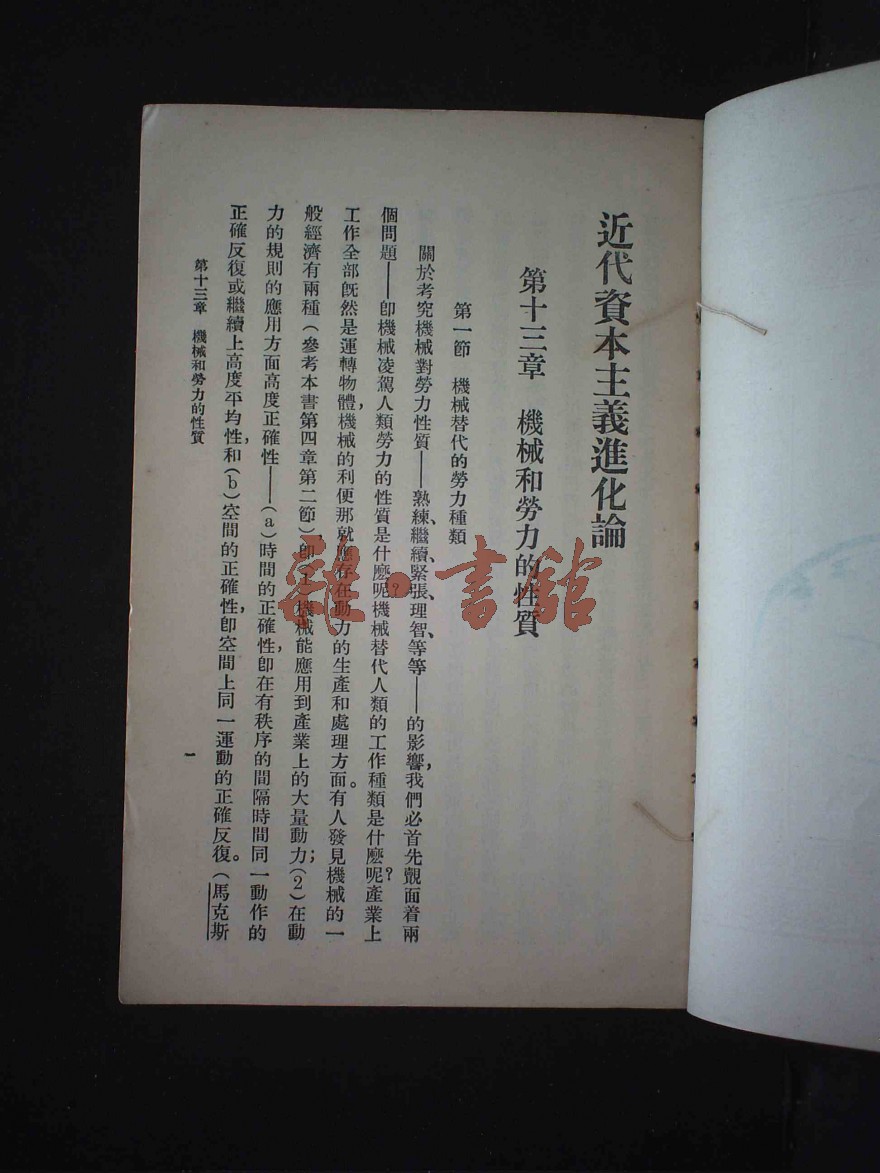 近代資本主義進化論
第十三章　機械和勞力的性質
第一節　機械替代的勞力種類
關於考究機械對勞力性質——熟練、繼續、緊張、理智、等等——的影響，我們必首先覿面着兩
個問題——卽機械凌駕人類勞力的性質是什麽呢？機械替代人類的工作種類是什麽呢？產業上
工作全部旣然是運轉物體，機械的利便那就應存在動力的生產和處理方面。有人發見機械的一
般經濟有兩種（參考本書第四章第二節）卽（1）機械能應用到產業上的大量動力；（2）在動
力的規則的應用方面高度正確性——（a）時間的正確性，卽在有秩序的間隔時間同一動作的
正確反復或繼續上高度平均性，和（b）空間的正確性，卽空間上同一運動的正確反復。（馬克斯
第十三章　機械和勞力的性質
一
雜·書館